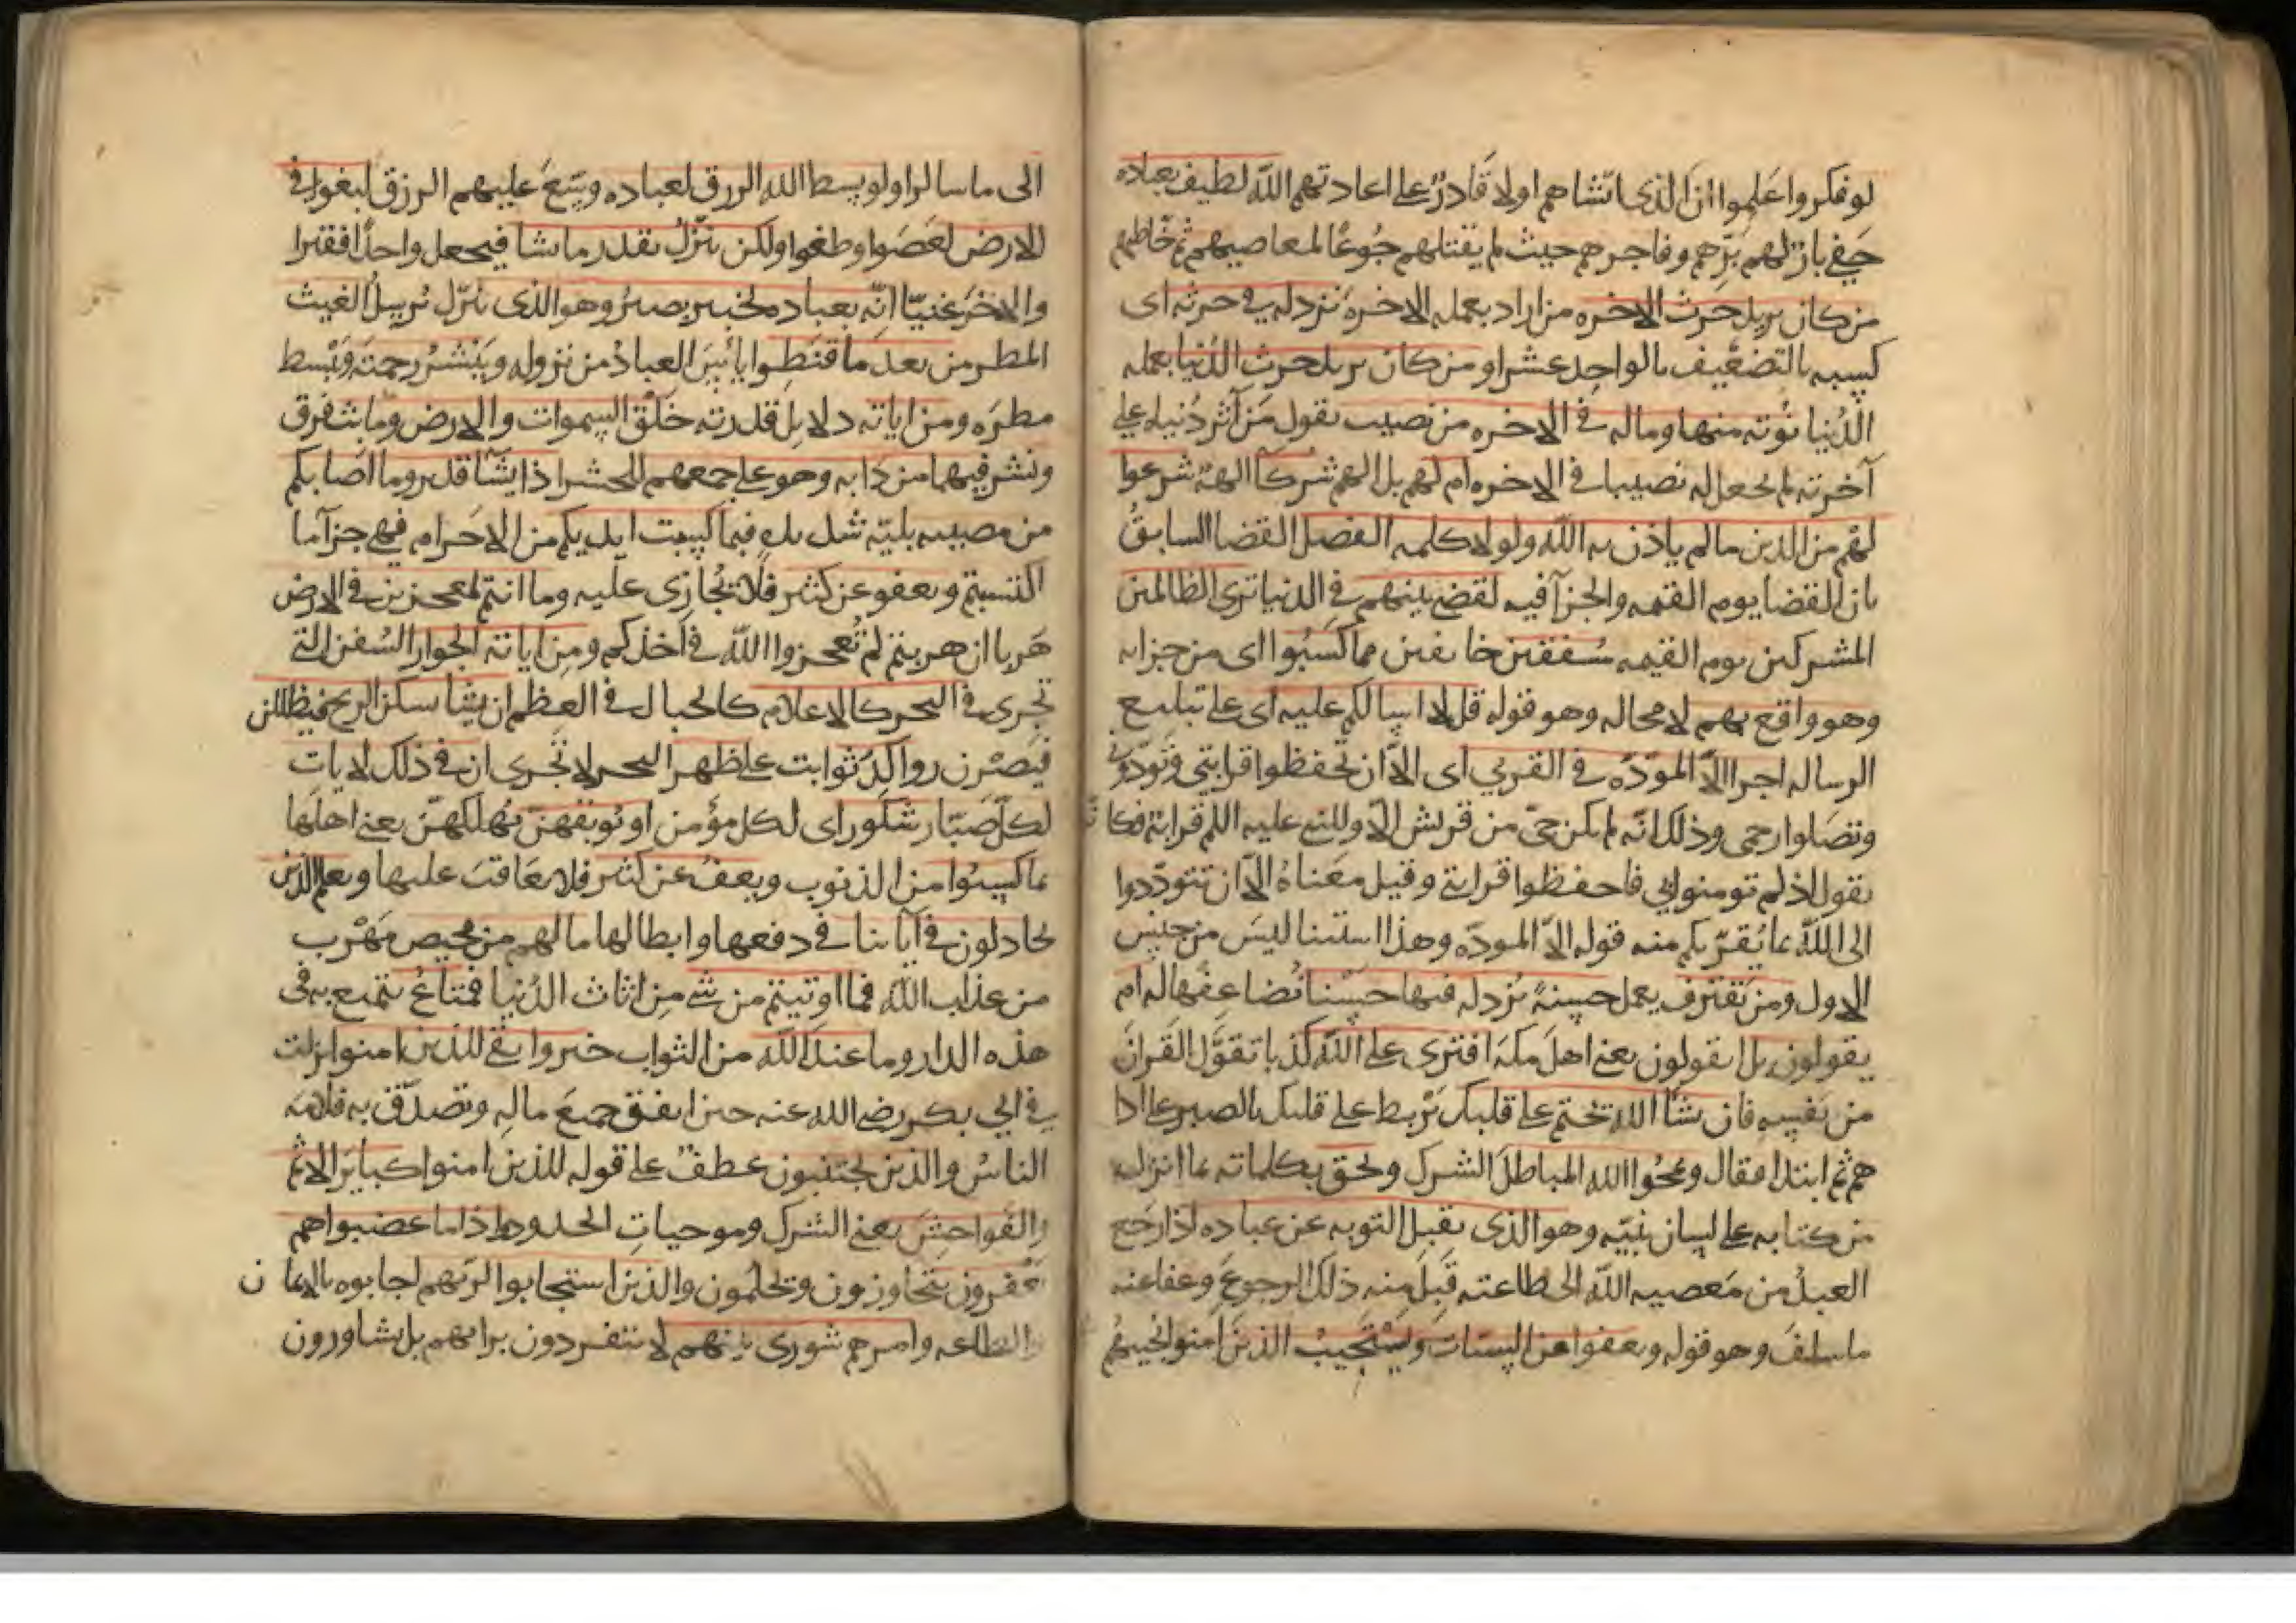 لو فكروا علموا ان الذى انشاهم اولا قادر على اعادتهم الله لطيف بعباده
حفى بار لهم برهم وفاجرهم حيث لم يقتلهم جوعا لمعاصيهم ثم خاطبهم
من كان يريد حرث الاخره من اراد بعمله الاخرة نزد له فى حرثه اى
كسبه بالتضعيف بالواحد عشرا ومن كان يريد حرث الدنيا بعمله
الدنيا نوته منها وماله فى الاخره من نصيب يقول من آثر دنياه على
آخرته لم نجعل له نصيبا فى الاخره ام لهم بل الهم شركآ الهة شرعوا
لهم من الدين ما لم ياذن به الله ولولا كلمه الفصل القضا السابق
بان القضا يوم القيمه والجزآ فيه لقضى بينهم فى الدنيا ترى الظالمين
المشركين يوم القيمه مشفقين خايفين مما كسبوا اى من جزايه
وهو واقع بهم لا محاله وهو قوله قل لا اسالكم عليه اى على تبليغ
الرساله اجرا الا المودّه فى القربى اى الا ان تحفظوا قرابتى وتودّونى
وتصلوا رحمى وذلك انه لم يكن حىّ من قريش الا وللنبى عليه السلم قرابة فكانه
يقول اذ لم تومنوا بى فاحفظوا قرابتى وقيل معناه الا ان تتودّدوا
الى الله بما يقربكم منه قوله الا المودّه وهذا استثنا ليس من جنس
الاول ومن يقترف يعمل حسنة نزد له فيها حسنا نضاعفها له ام
يقولون بل ايقولون يعنى اهل مكة افترى على الله كذبا تقوّل القران
من نفسه فان يشأ الله يختم على قلبك يربط على قلبك بالصبر على اذا
هم ثم ابتدا فقال ويمحوا الله الباطل الشرك ويحق بكلماته بما انزله
من كتابه على لسان نبيّه وهو الذى يقبل التوبه عن عباده اذا رجع
العبد من معصيه الله الى طاعته قبل منه ذلك الرجوع وعفا عنه
ما سلف وهو قوله ويعفوا عن السيّات ويستجيب الذين امنوا يجيبهم
الى ما سالوا ولو بسط الله الرزق لعباده وسّع عليهم الرزق لبغوا فى
الارض لعصوا وطغوا ولكن ينزل بقدر ما يشا فيجعل واحدا فقيرا
والاخر غنيّا انه بعباده لخبير بصير وهو الذى ينزل يرسل الغيث
المطر من بعد ما قنطوا يائس العباد من نزوله وينشر رحمته ويبسط
مطره ومن اياته دلايل قدرته خلق السموات والارض وما بث فرق
ونشر فيهما من دابه وهو على جمعهم للحشر اذا يشآ قدير وما اصابكم
من مصيبه بليّه شديده فبما كسبت ايديكم من الاجرام فهى جزآ ما
اكتسبتم ويعفو عن كثير فلا يجازى عليه وما انتم بمعجزين فى الارض
هربا ان هربتم لم تعجزوا الله فى اخذكم ومن اياته الجوار السفن التى
تجرى فى البحر كالاعلام كالجبال فى العظم ان يشأ يسكن الريح فيظللن
فيصرن رواكد ثوابت على ظهر البحر لا تجرى ان فى ذلك لايات
لكل صبّار شكور اى لكل مؤمن او يوبقهنّ يهلكهنّ يعنى اهلها
بما كسبوا من الذنوب ويعف عن كثير فلا يعاقب عليها ويعلم الذين
يجادلون فى آياتنا فى دفعها وابطالها مالهم من محيص مهرب
من عذاب الله فما اوتيتم من شى من اثاث الدنيا فمتاع يتمتع به فى
هذه الدار وما عند الله من الثواب خير وابقى للذين امنوا نزلت
فى ابى بكر رضى الله عنه حين انفق جميع ماله وتصدّق به فلامه
الناس والذين يجتنبون عطف على قوله للذين امنوا كباير الاثم
والفواحش يعنى الشرك وموجبات الحدود واذا ما غضبوا هم
يغفرون يتجاوزون ويحلمون والذين استجابوا لربهم اجابوه بالايمان
والطاعه وامرهم شورى بينهم لا يتفردون برايهم بل يشاورون